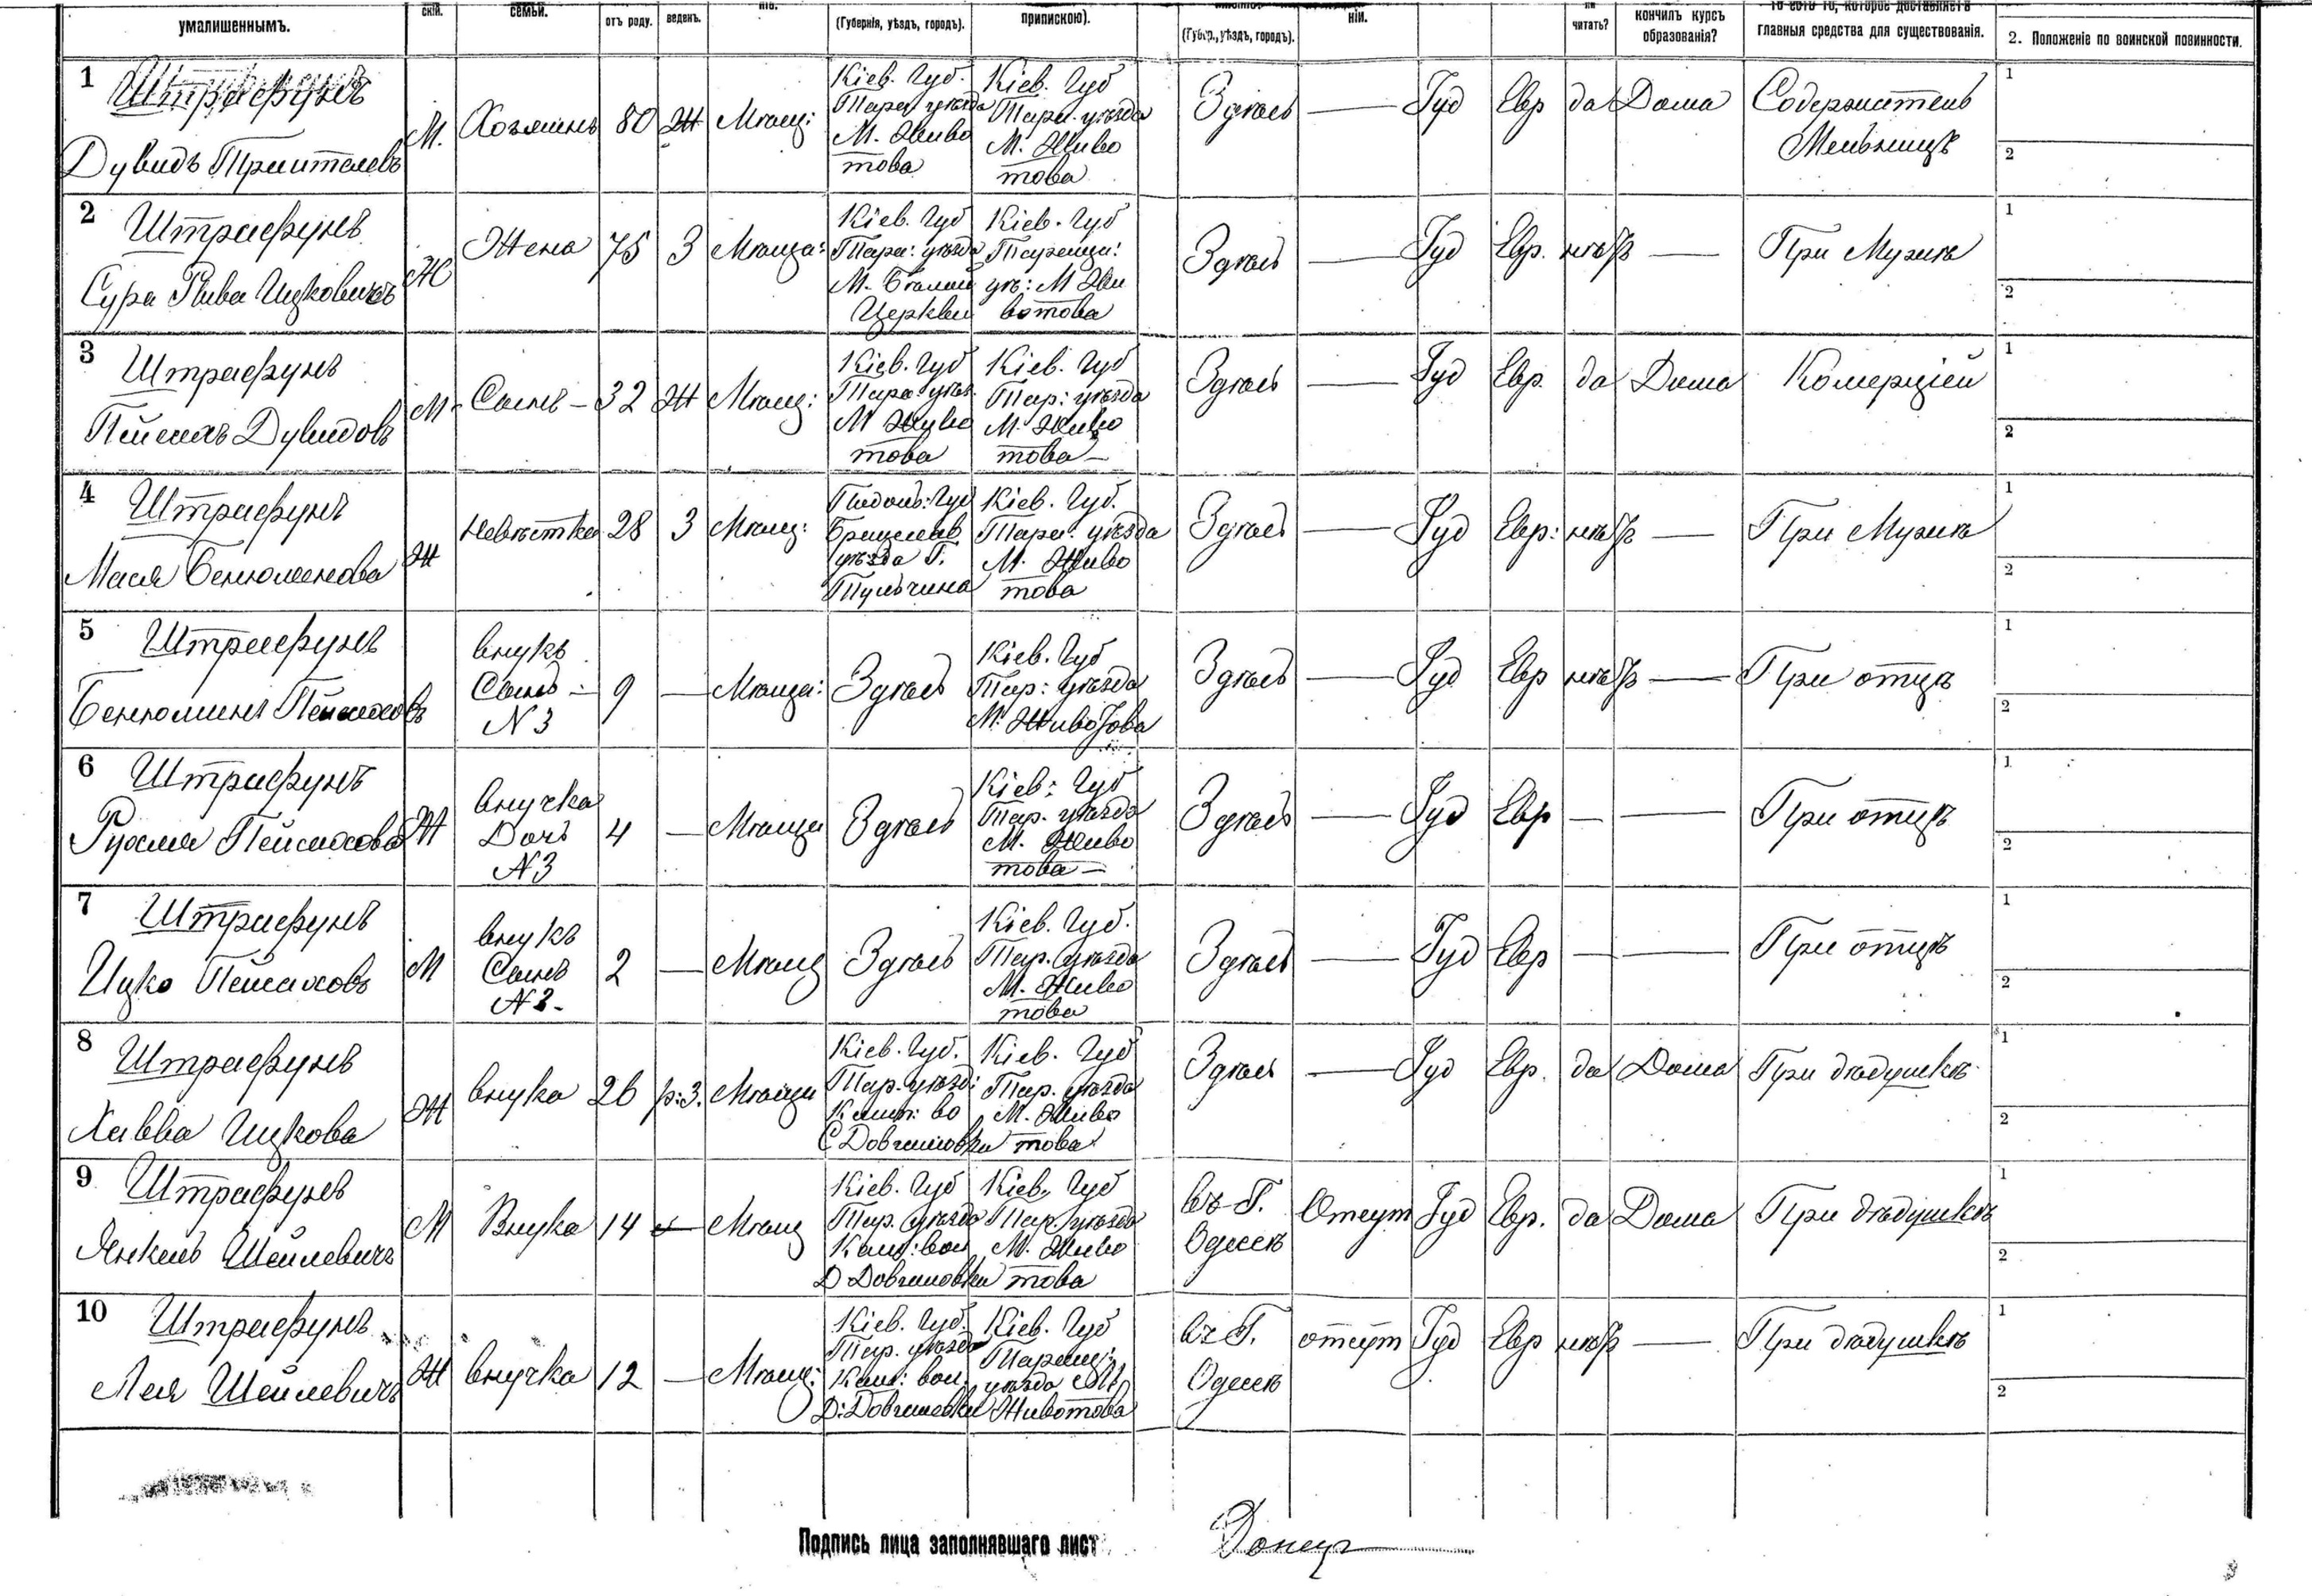 умалишеннымъ. скій. семьи. отъ роду. веденъ. (Губернія, уѣздъ, городъ). припискою). (Губер., уѣздъ, городъ). ніи. читать? кончилъ курсъ образованія? главныя средства для существованія. 2. Положеніе по воинской повинности.
1 Штрафунъ
Дувидъ
М. Хозяинъ 80 Ж Мѣщ:
Кіев. Губ.
Тара. уѣзда
М. Живо
това
Кіев. Губ
Тара. уѣзда
М. Живо
това
Здѣсь — Іуд Евр да Дома
Содержатель
Мельницъ
1
2
2 Штрафунъ
Сура Рива Ицковичъ
Ж Жена 75 З Мѣща:
Кіев. Губ
Тара: уѣзда
М. Бѣлай
Церкви
Кіев. Губ
Таращи:
уѣ: М Жи
вотова
Здѣсь — Іуд Евр. нѣтъ — При Мужѣ
1
2
3 Штрафунъ
Пейсахъ Дувидовъ
М. Сынъ — 32 Ж Мѣщ:
Кіев. Губ
Тара уѣз.
М Живо
това
Кіев. Губ
Тар: уѣзда
М. Живо
това —
Здѣсь — Іуд Евр. да Дома Комерціей
1
2
4 Штрафунъ
Мася Бенюменова
Ж Невѣстка 28 З Мѣщ:
Подоль: Губ
Брацлавъ
уѣзда Г.
Тульчина
Кіев. Губ.
Тара. уѣзда
М. Живо
това
Здѣсь — Іуд Евр: нѣтъ — При Мужѣ
1
2
5 Штрафунъ
Бенюминъ Пейсаховъ
внукъ
Сынъ —
N 3
9 — Мѣща: Здѣсь
Кіев. Губ
Тар: уѣзда
М. Животова
Здѣсь — Іуд Евр нѣтъ — При отцѣ
1
2
6 Штрафунъ
Пейсахова
Ж
внучка
Дочь
N 3
4 — Мѣща Здѣсь
Кіев: Губ
Тар. уѣзда
М. Живо
това —
Здѣсь — Іуд Евр — — При отцѣ
1
2
7 Штрафунъ
Ицко Пейсаховъ
М
внукъ
Сынъ
N 3 -
2 — Мѣщ Здѣсь
Кіев. Губ.
Тар. уѣзда
М. Живо
това
Здѣсь — Іуд Евр — — При отцѣ
1
2
8 Штрафунъ
Хавва Ицкова
Ж внука 26 р:З. Мѣщи
Кіев. Губ.
Тар. уѣзд:
во
Кіев. Губ
Тар. уѣзда
М. Живо
това
Здѣсь — Іуд Евр. да Дома При дѣдушкѣ
1
2
9 Штрафунъ
Янкель Шейлевичъ
М Внука 14 — Мѣщ
Кіев. Губ
Тар. уѣзда
Кош: вол
Кіев. Губ
Тар. уѣзда
М. Живо
това
въ Г.
Одессѣ
Отсут Іуд Евр. да Дома При дѣдушкѣ
1
2
10 Штрафунъ
Лея Шейлевичъ
Ж внучка 12 — Мѣщ:
Кіев. Губ.
Тар. уѣзда
Кош: вол.
Кіев. Губ
Таращ:
уѣзда М
Животова
въ Г.
Одессѣ
отсут Іуд Евр нѣтъ — При дѣдушкѣ
1
2
Подпись лица заполнявшаго лист